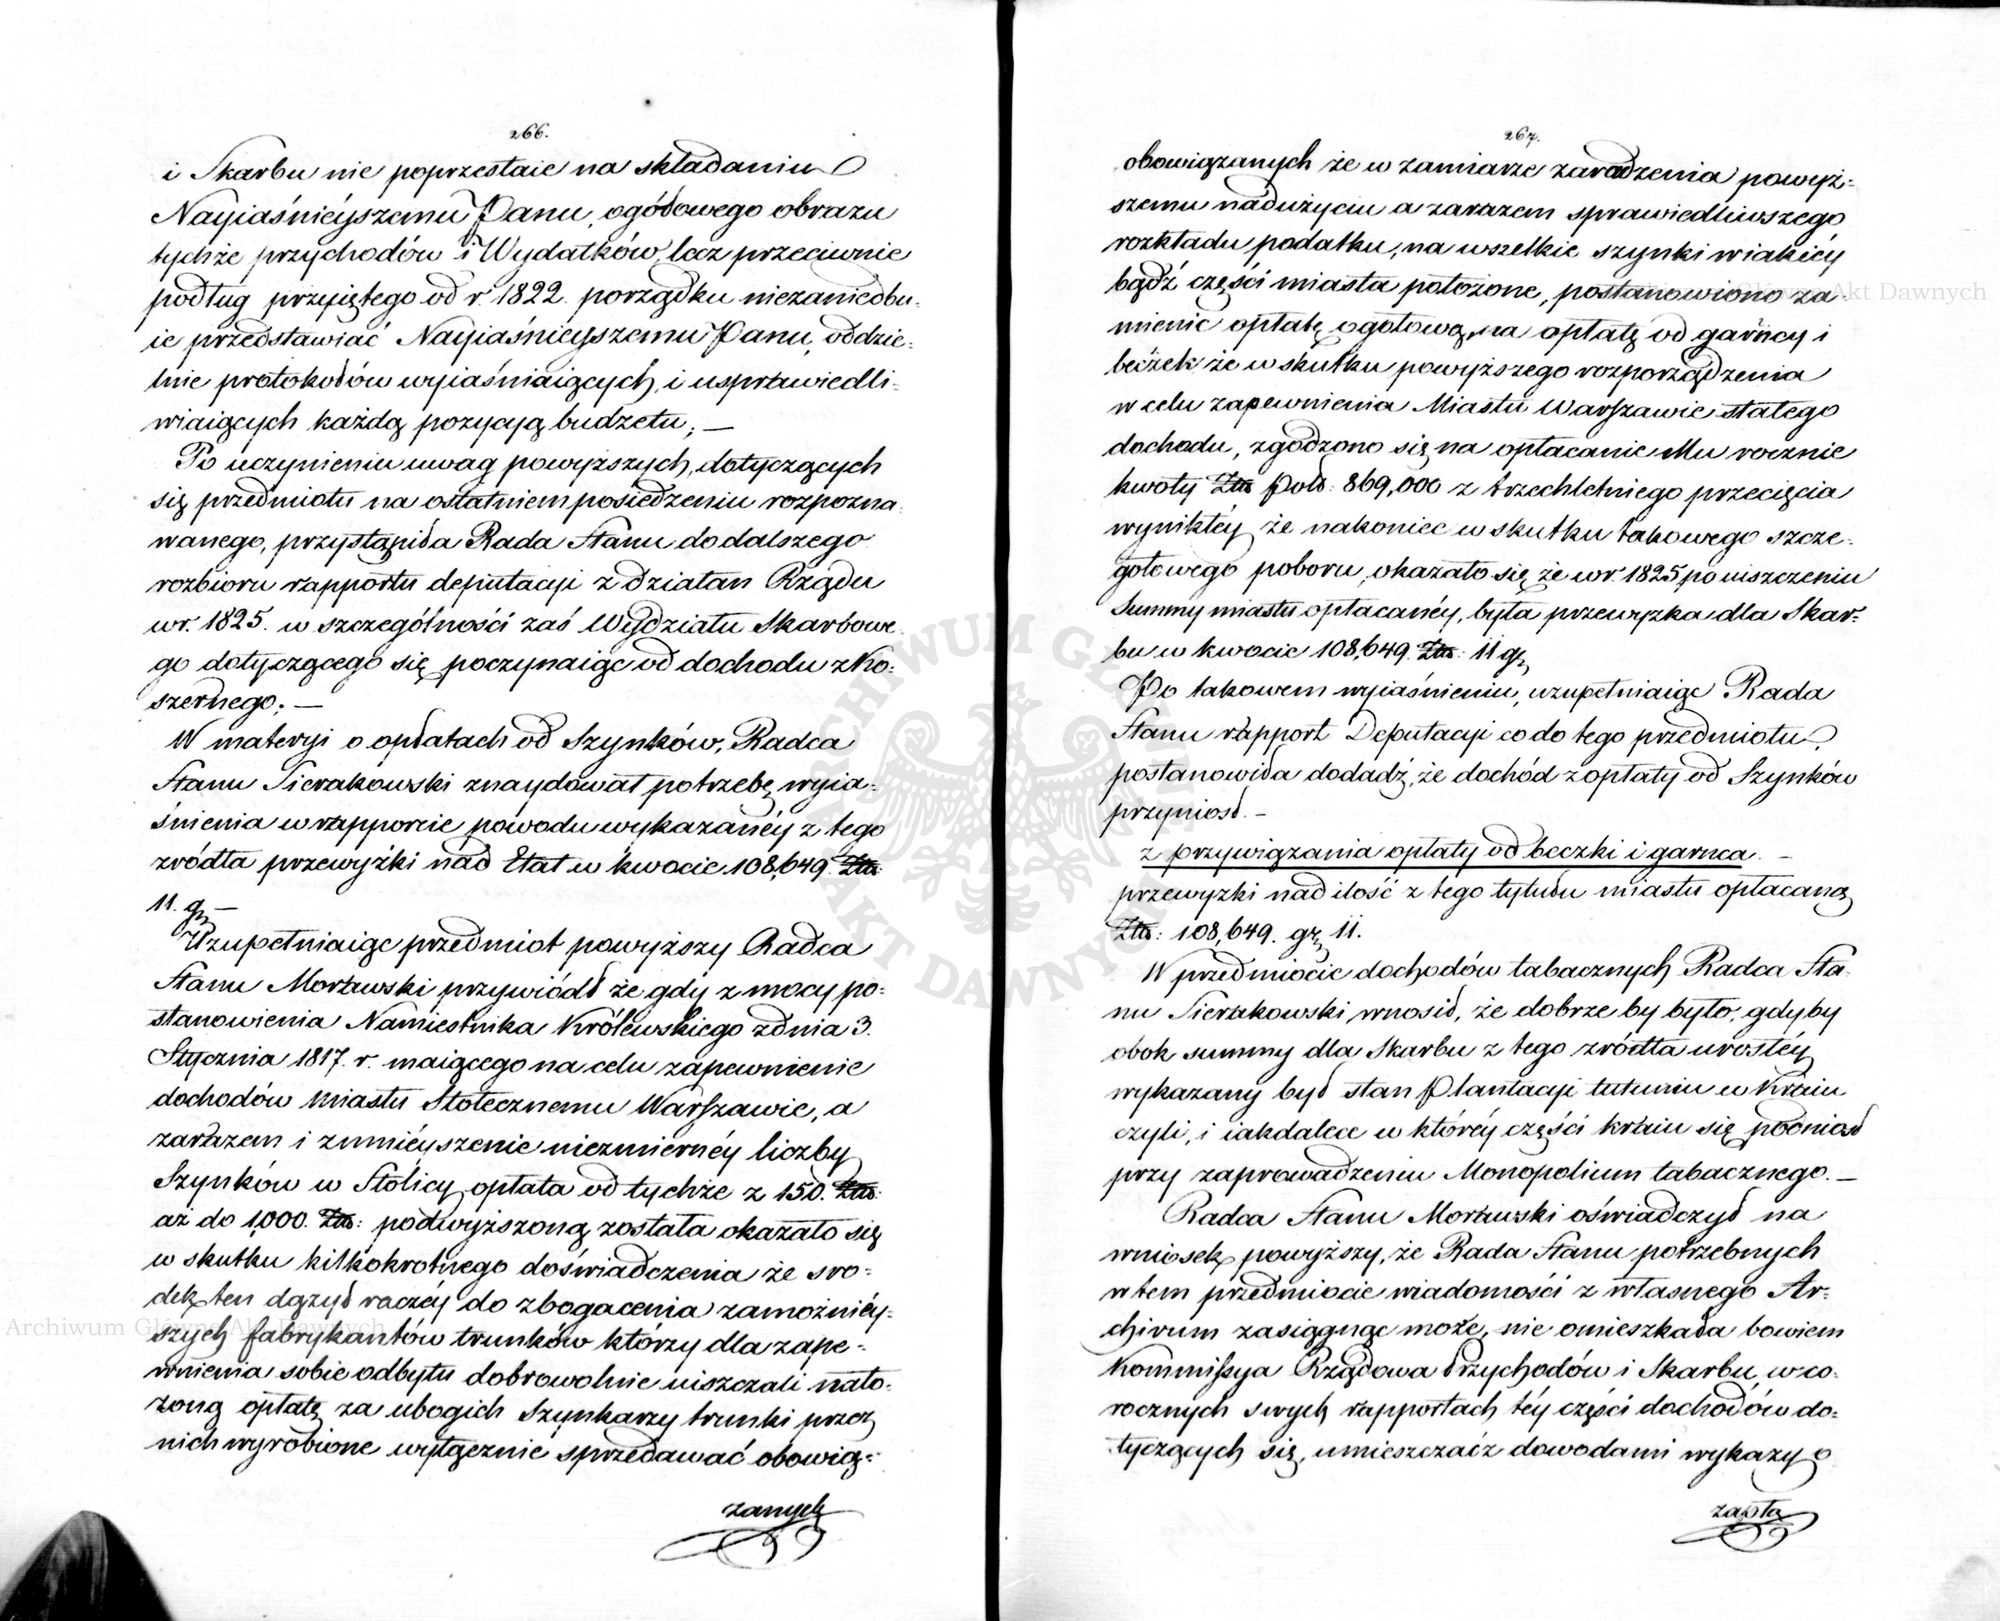 266.
i Skarbu nie poprzestaie na składaniu
Nayiaśnieyszemu Panu, ogółowego obrazu
tychże przychodów i Wydatków, lecz przeciwnie
podług przyiętego od r. 1822. porządku niezaniedbu-
ie przedstawiać Nayiaśnieyszemu Panu, oddzie-
lnie protokołów wyiaśniaiących i usprawiedli-
wiaiących każdą pozycyą budżetu; —
Po uczynieniu uwag powyższych, dotyczących
się przedmiotu na ostatniem posiedzeniu rozpozna-
wanego, przystąpiła Rada Stanu do dalszego
rozbioru rapportu deputacyi z działań Rządu
w r. 1825. w szczególności zaś Wydziału Skarbowe-
go dotyczącego się poczynaiąc od dochodu z Ko-
szernego; —
W materyi o opłatach od Szynków, Radca
Stanu Sierakowski znaydował potrzebę wyia-
śnienia w rapporcie powodu wykazanéy z tego
zródła przewyżki nad Etat w kwocie 108,649. Złp:
11. gr. —
Uzupełniaiąc przedmiot powyższy Radca
Stanu Morawski przywiódł że gdy z mocy po-
stanowienia Namiestnika Królewskiego z dnia 3.
Stycznia 1817. r. maiącego na celu zapewnienie
dochodów miastu Stołecznemu Warszawie, a
zarazem i zmniéyszenie niezmiernéy liczby
Szynków w Stolicy opłata od tychże z 150. Złp:
aż do 1,000. Złp: podwyższoną została okazało się
w skutku kilkokrotnego doświadczenia że sro-
dek ten dążył raczéy do zbogacenia zamożniéy-
szych fabrykantów trunków którzy dla zape-
wnienia sobie odbytu dobrowolnie uiszczali nało-
żoną opłatę za ubogich Szynkarzy trunki przez
nich wyrobione wyłącznie sprzedawać obowią-
zanych
267.
obowiązanych że w zamiarze zaradzenia powyż-
szemu nadużyciu a zarazem sprawiedliwszego
rozkładu podatku, na wszelkie szynki w iakiéy
bądź części miasta położone, postanowiono za-
mienić opłatę ogołową, na opłatę od garncy i
beczek że w skutku powyższego rozporządzenia
w celu zapewnienia Miastu Warszawie stałego
dochodu, zgodzono się na opłacanie Mu rocznie
kwoty Złp Pols: 869,000 z trzechletniego przecięcia
wynikłéy że nakoniec w skutku takowego szcze-
gołowego poboru okazało się że w r. 1825 po uiszczeniu
Summy miastu opłacanéy, była przewyzka dla Skar-
bu w kwocie 108,649. Złp: 11 gr.
Po takowem wyiaśnieniu, uzupełniaiąc Rada
Stanu rapport Deputacyi co do tego przedmiotu,
postanowiła dodadź, że dochód z opłaty od Szynków
przyniosł. —
z przywiązania opłaty od beczki i garnca. —
przewyzki nad ilość z tego tytułu miastu opłacaną
Złp: 108,649. gr. 11.
W przedmiocie dochodów tabacznych Radca Sta-
nu Sierakowski wnosił, że dobrze by było, gdyby
obok summy dla Skarbu z tego zródła urosłéy
wykazany był stan Plantacyi tutuniu w Kraiu
czyli, i iakdalece w któréy części kraiu się podniosł
przy zaprowadzeniu Monopolium tabacznego. —
Radca Stanu Morawski oświadczył na
wniosek powyższy, że Rada Stanu potrzebnych
w tem przedmiocie wiadomości z własnego Ar-
chivum zasiągnąc może, nie omieszkała bowiem
Kommissya Rządowa Przychodów i Skarbu, w co-
rocznych swych rapportach téy części dochodów do-
tyczących się, umieszczać z dowodami wykazy o
zapła
Archiwum Główne Akt Dawnych
Archiwum Główne Akt Dawnych
ARCHIWUM GŁÓWNE AKT DAWNYCH